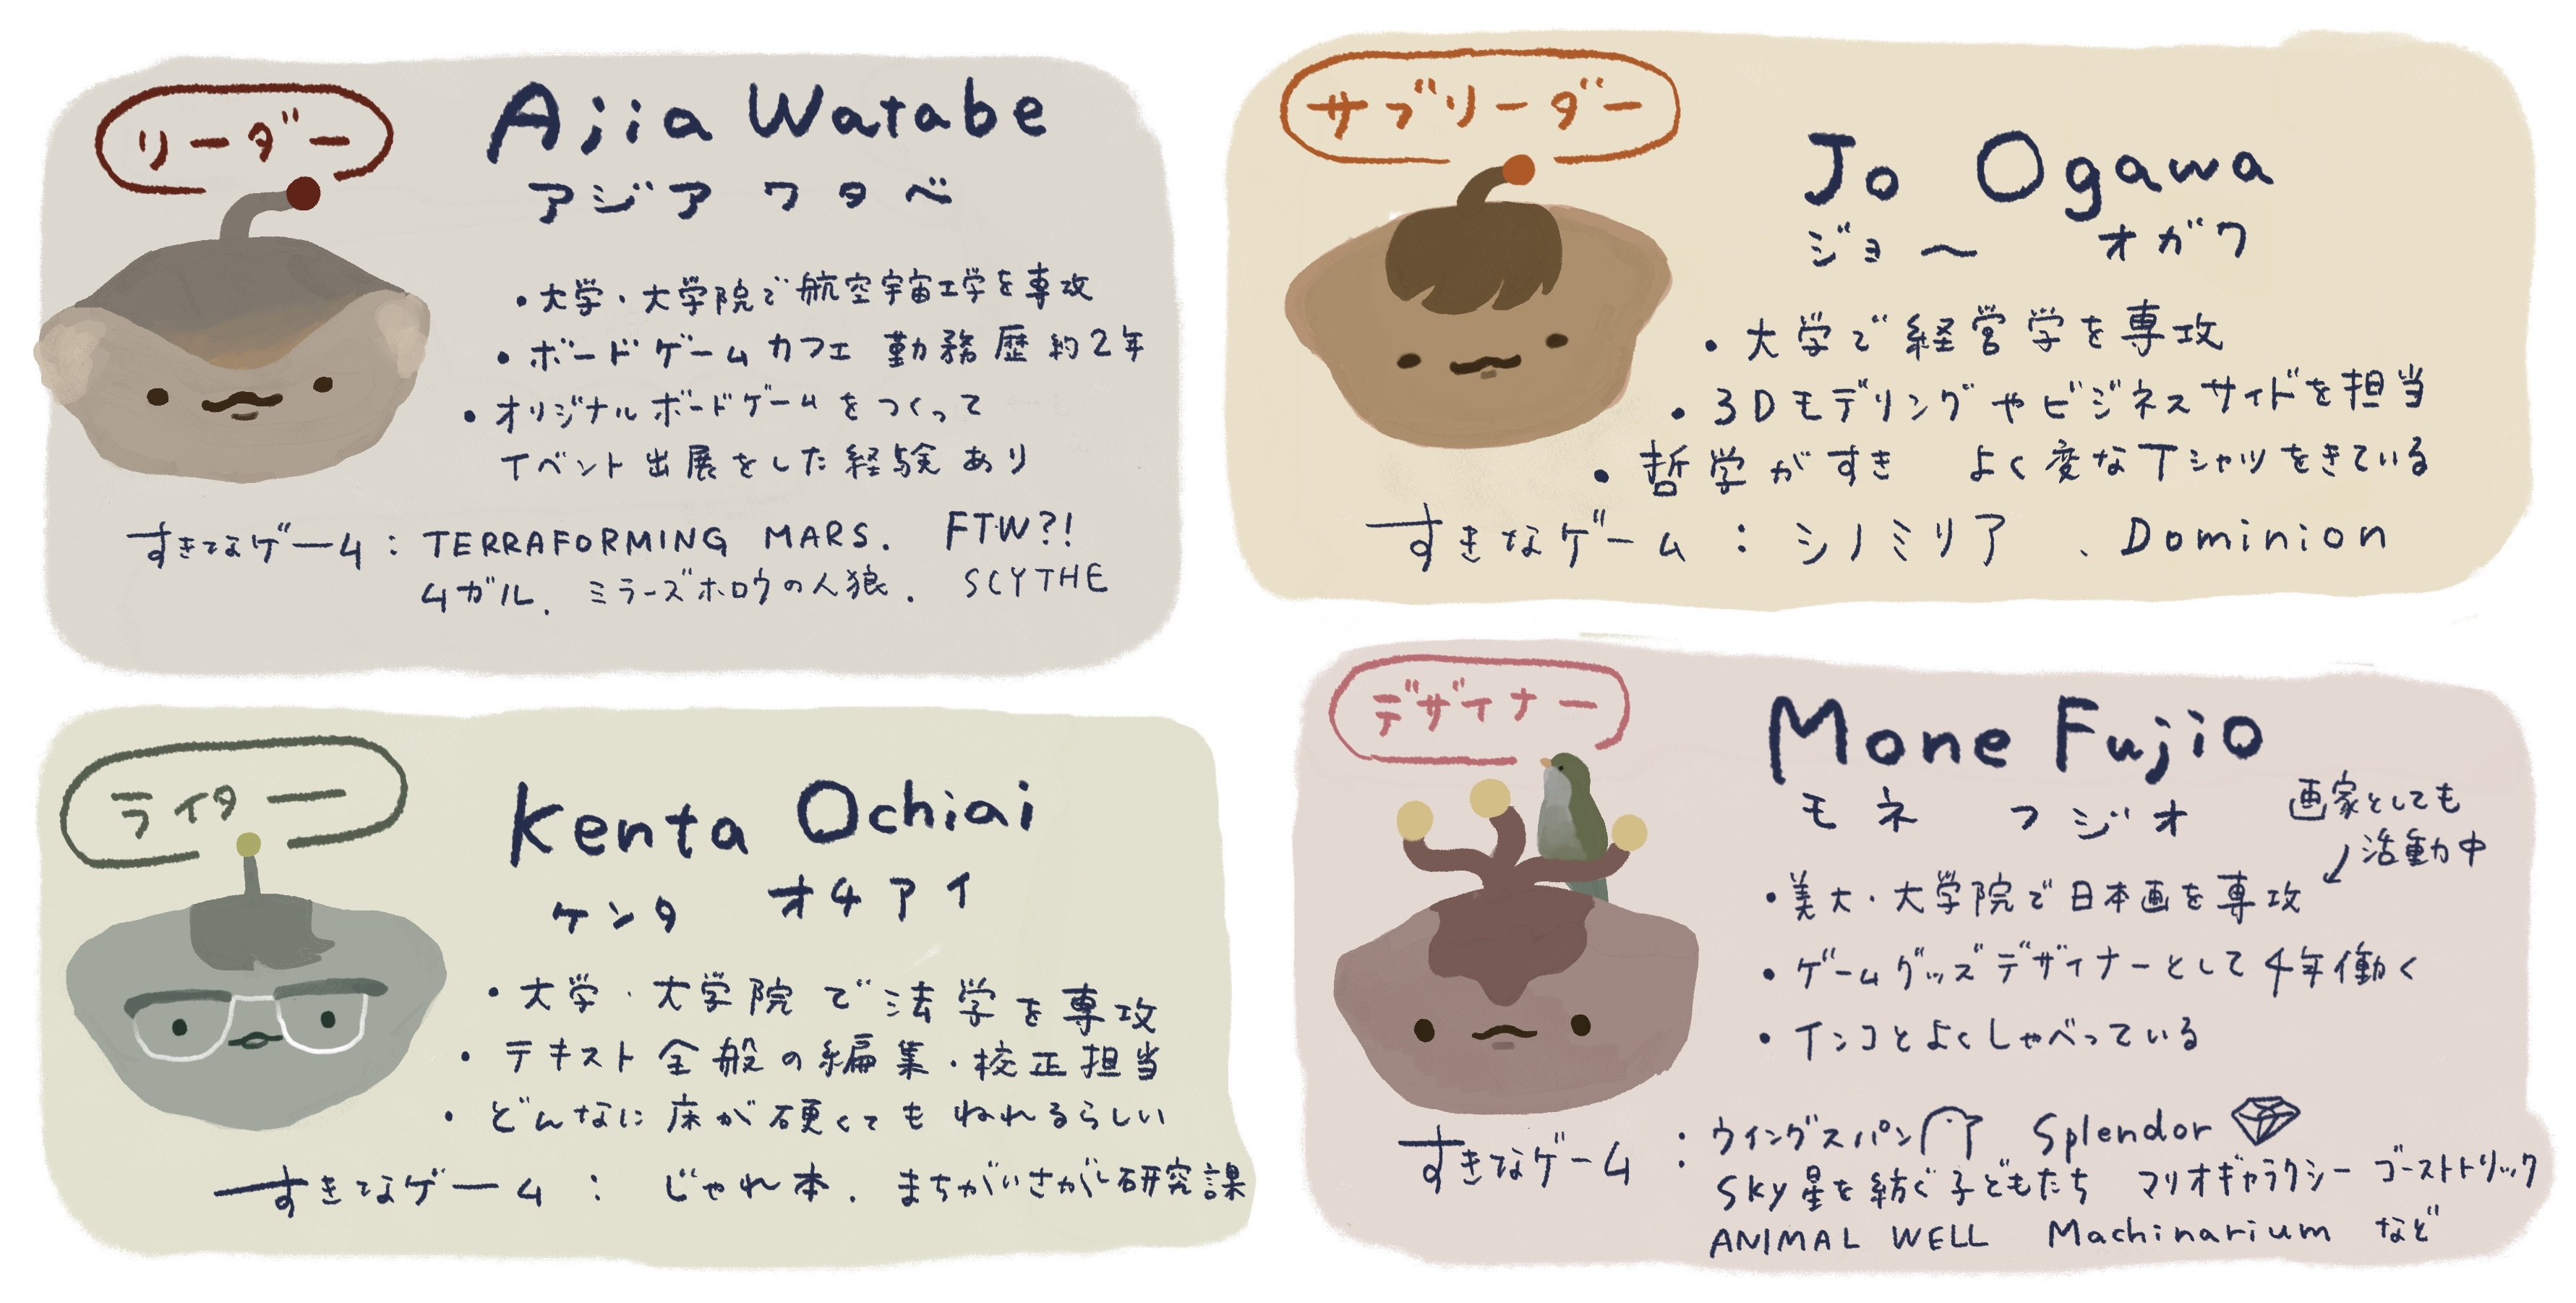 リーダー
Ajia Watabe
アジア ワタベ
・大学・大学院で航空宇宙工学を専攻
・ボードゲームカフェ 勤務歴 約2年
・オリジナルボードゲームをつくって
イベント出展をした経験あり
すきなゲーム：TERRAFORMING MARS. FTW?!
ムガル. ミラーズホロウの人狼. SCYTHE
サブリーダー
Jo Ogawa
ジョ〜 オガワ
・大学で経営学を専攻
・3Dモデリングやビジネスサイドを担当
・哲学がすき よく変なTシャツをきている
すきなゲーム：シノミリア 、Dominion
ライター
Kenta Ochiai
ケンタ オチアイ
・大学・大学院で法学を専攻
・テキスト全般の編集・校正担当
・どんなに床が硬くてもねれるらしい
すきなゲーム： じゃれ本. まちがいさがし研究課
デザイナー
Mone Fujio
モネ フジオ
画家としても
活動中
・美大・大学院で日本画を専攻
・ゲームグッズデザイナーとして4年働く
・インコとよくしゃべっている
すきなゲーム：ウイングスパン Splendor
Sky星を紡ぐ子どもたち マリオギャラクシー ゴーストトリック
ANIMAL WELL Machinarium など